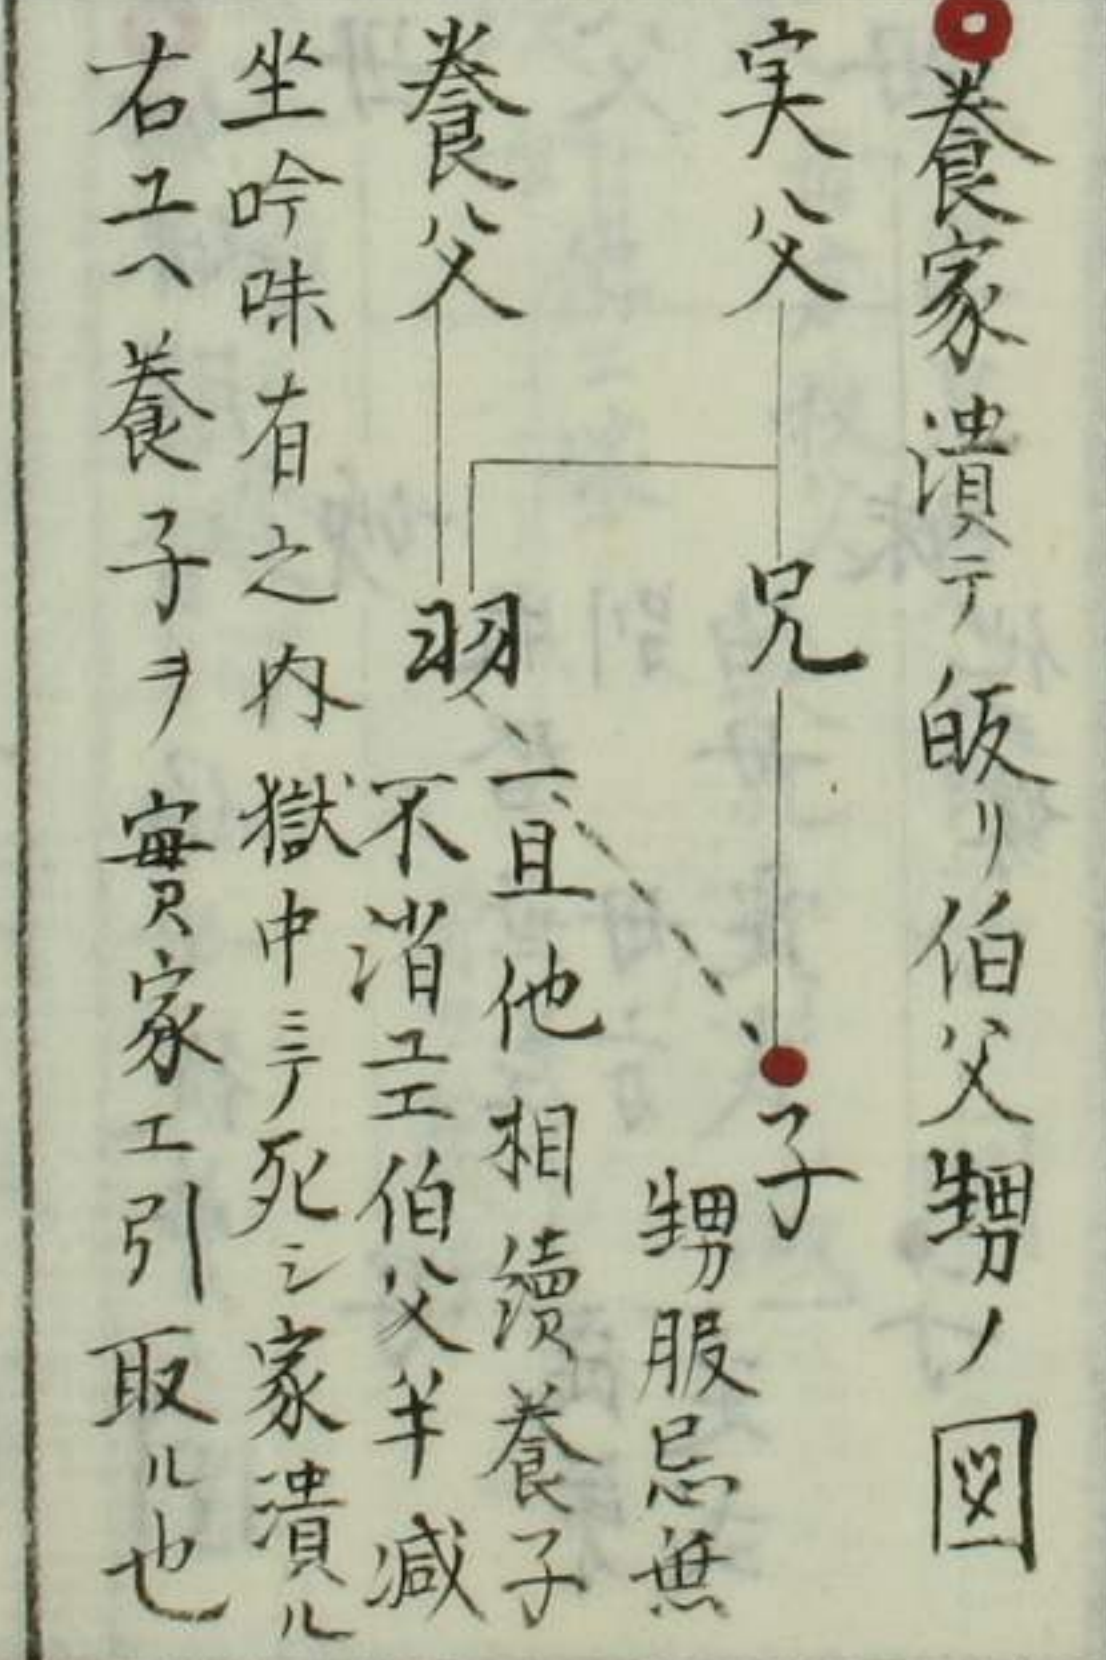 養家潰テ皈リ伯父甥ノ図
実父
兄
子
甥服忌無
養父
羽
一旦他相續養子
不消ユエ伯父半減
坐吟味有之内獄中ミテ死シ家潰ル
右ユヘ養子ヲ實家エ引取ル也